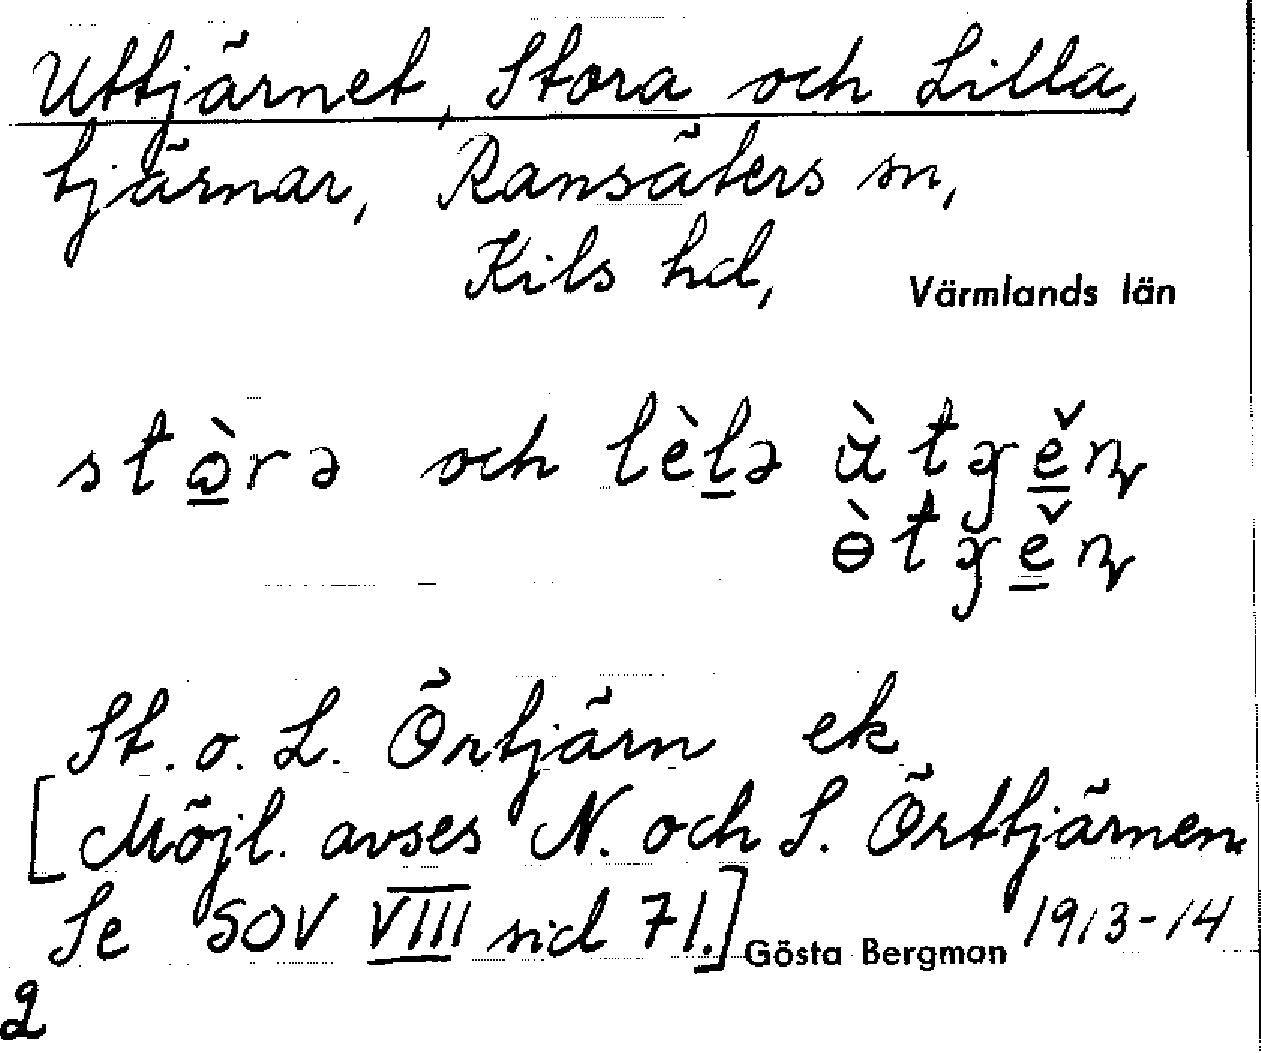 Uttjärnet, Stora och Lilla,
tjärnar, Ransäters sn,
Kils hd, Värmlands län
stɷ̀rə och lèlə ùtɟěɳ
ɵ̀tɟěɳ
St. o. L. Örtjärn ek
[Möjl. avses N. och S. Örttjärnen.
Se SOV VIII sid 71.] Gösta Bergman 1913-14
2